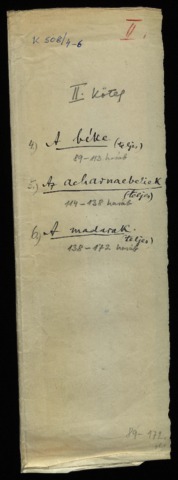 K 508/4-6
II.
II. Köteg
4.) A béke (teljes)
89-113 
5.) Az acharnaebeliek
(teljes)
114-138 
6.) A madarak.
(teljes)
138-172 
89-172.